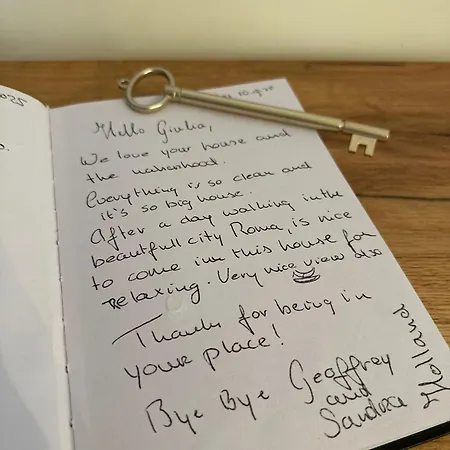 025
Hello Giulia,
We love your house and
the naborhood.
Everything is so clean and
it's so big house.
After a day walking in the
beautifull city Roma, is nice
to come in this house for
relaxing. Very nice view also
Thanks for being in
your place!
Bye Bye Geoffrey
and
Sandra
Holland